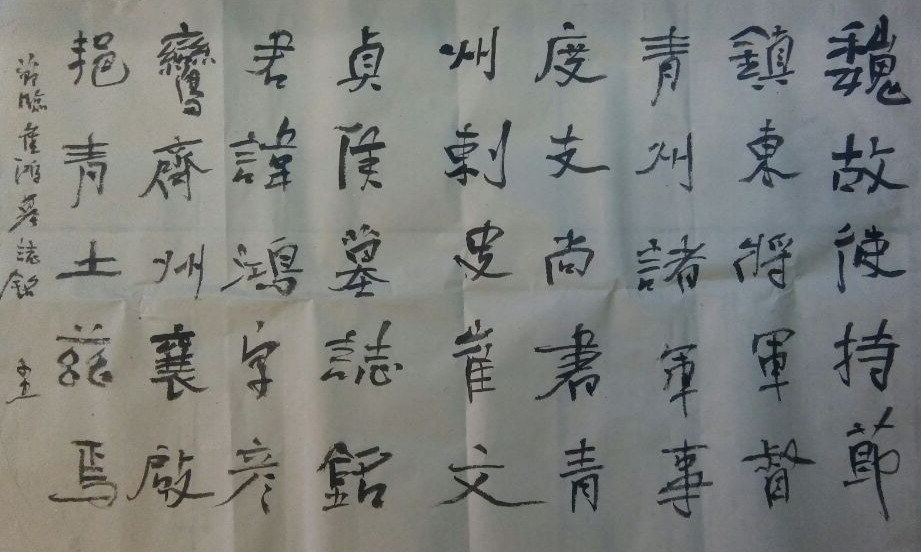 魏故使持節
鎮東將軍督
青州諸軍事
度支尚書青
州刺史崔文
貞侯墓誌銘
君諱鴻字彥
鸞齊州襄啟
邑青土茲焉
節臨崔鴻墓誌銘